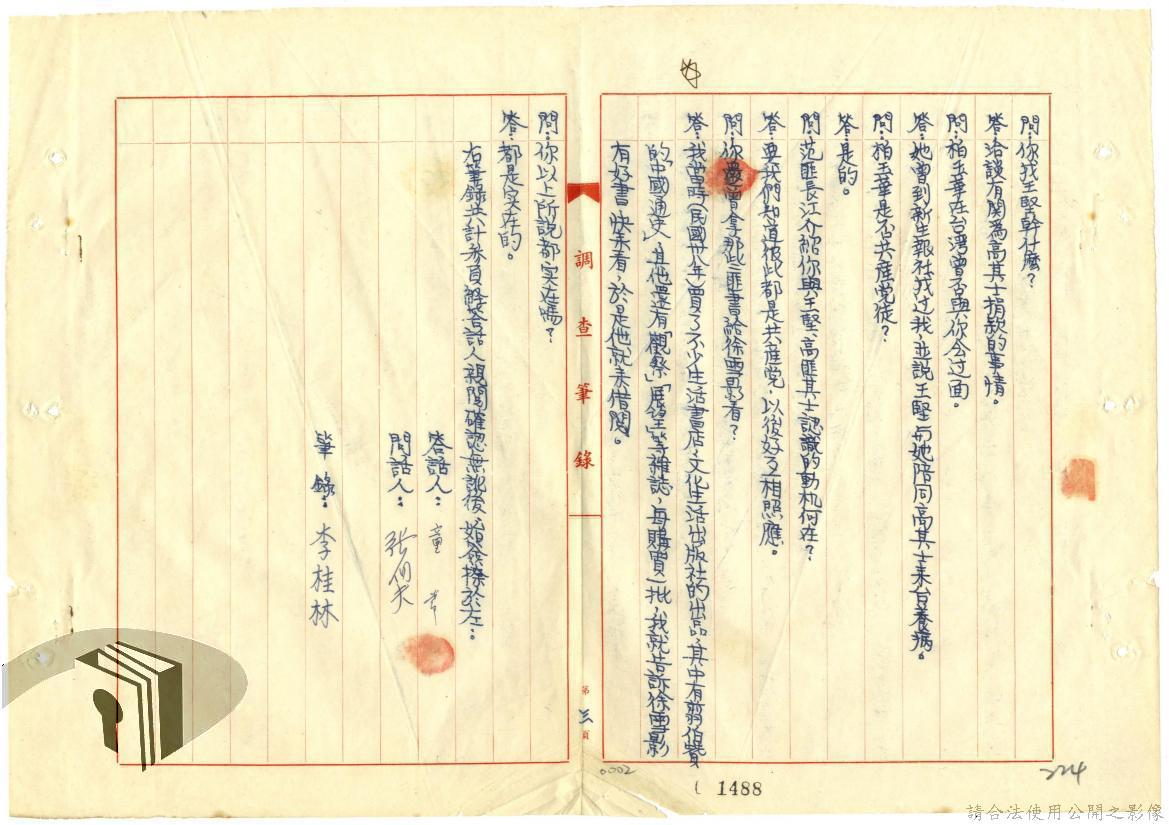 問：你找王堅幹什麼？
答：洽談有関為高其士捐款的事情。
問：柏玉華在台湾曾否與你会过面。
答：她曾到新生報社找过我，並説王堅与她陪同高其士来台養病。
問：柏玉華是否共産党徒？
答：是的。
問：范匪長江介紹你與王堅、高匪其士認識的動机何在？
答：要我們知道彼此都是共産党，以後好互相照應。
問：你還曾拿那些匪書給徐雩影看？
答：我當時（民國卅八年）買了不少生活書店，文化生活出版社的出品，其中有翦伯贊
的「中國通史」，其他還有「觀察」「展望」等雜誌，每購買一批，我就告訴徐雩影
有好書快来看，於是他就来借閱。
調查筆錄
第三頁
問：你以上所説都实在嗎？
答：都是实在的。
右筆錄共計叁頁經答話人親閱確認無訛後，始簽捺於左：
答話人：童常
問話人：張
筆錄：李桂林
0002
1488
224
請合法使用公開之影像